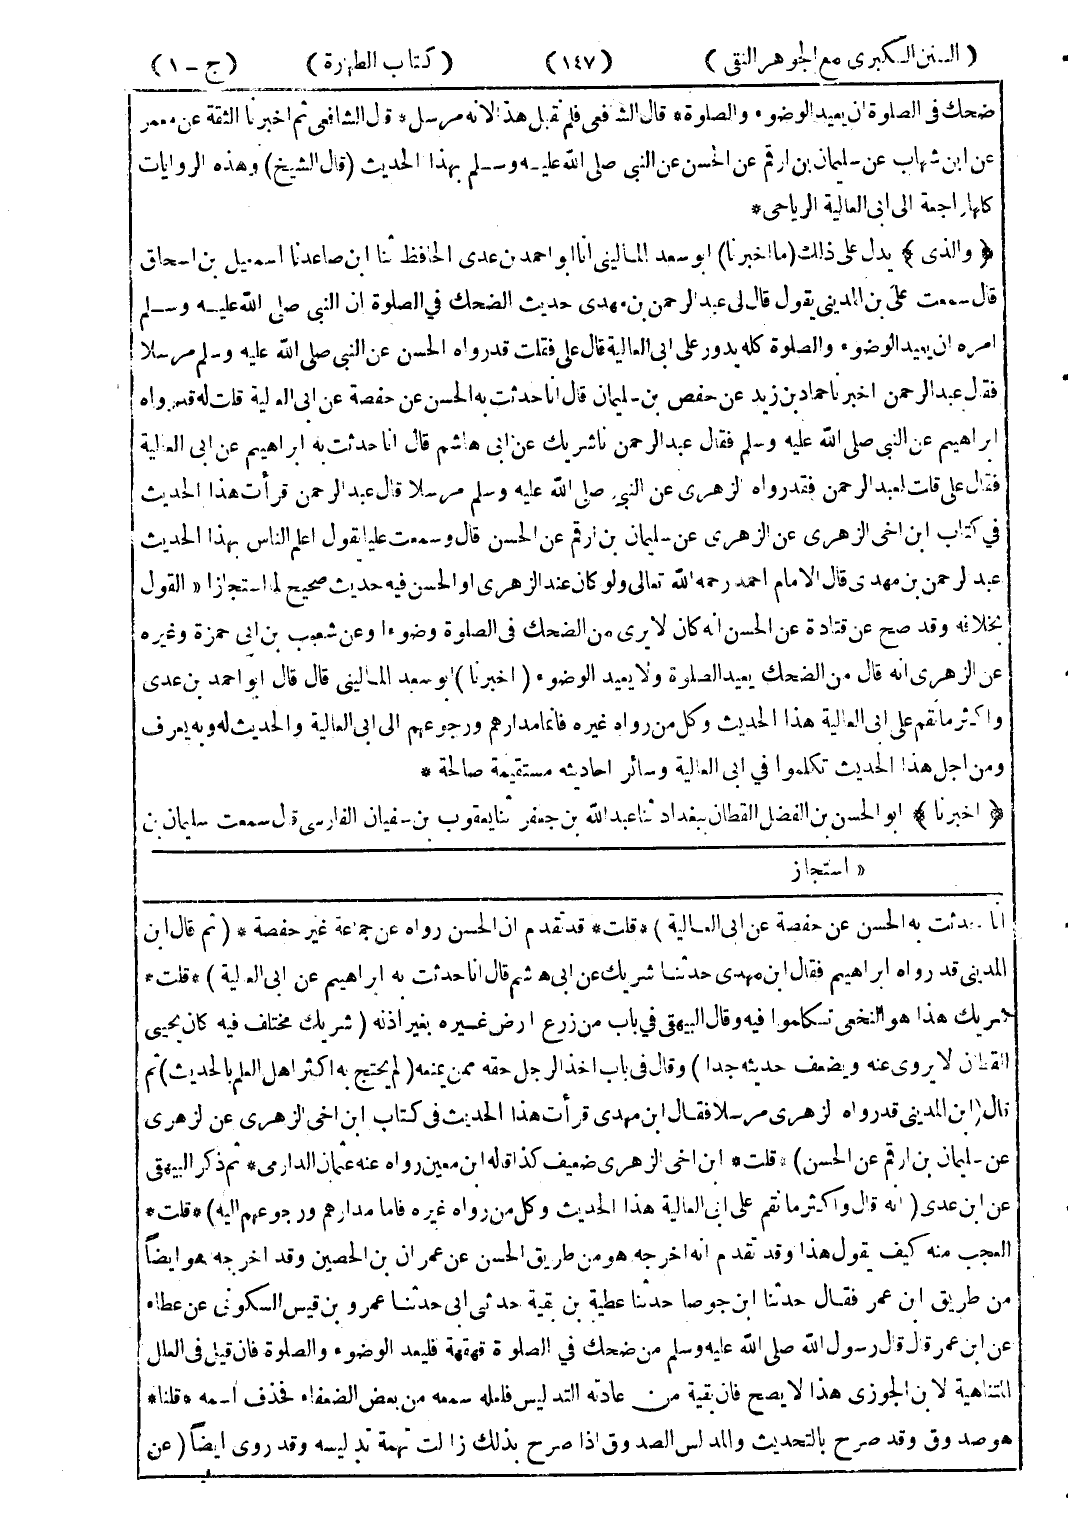 ( السنن الكبرى مع الجوهر النقى ) (١٤٧) ( كتاب الطهارة ) ( ج - ١ )
ضحك فى الصلوة ان يعيد الوضوء والصلوة * قال الشافعى فلم نقبل هذا لانه مرسل * قال الشافعى ثم اخبرنا الثقة عن معمر
عن ابن شهاب عن سليمان بن ارقم عن الحسن عن النبى صلى الله عليه وسلم بهذا الحديث (قال الشيخ) وهذه الروايات
كلها راجعة الى ابى العالية الرياحى *
﴿ والذى ﴾ يدل على ذلك (ما اخبرنا) ابو سعد المالينى انا ابو احمد بن عدى الحافظ ثنا ابن صاعد نا اسمعيل بن اسحاق
قال سمعت على بن المدينى يقول قال لى عبد الرحمن بن مهدى حديث الضحك فى الصلوة ان النبى صلى الله عليه وسلم
امره ان يعيد الوضوء والصلوة كله يدور على ابى العالية قال على فقلت قد رواه الحسن عن النبى صلى الله عليه وسلم مرسلا
فقال عبد الرحمن اخبرنا حماد بن زيد عن حفص بن سليمان قال انا حدثت به الحسن عن حفصة عن ابى العالية قلت له قد رواه
ابراهيم عن النبى صلى الله عليه وسلم فقال عبد الرحمن نا شريك عن ابى هاشم قال انا حدثت به ابراهيم عن ابى العالية
فقال على قلت لعبد الرحمن فقد رواه الزهرى عن النبى صلى الله عليه وسلم مرسلا قال عبد الرحمن قرأت هذا الحديث
فى كتاب ابن اخى الزهرى عن الزهرى عن سليمان بن ارقم عن الحسن قال وسمعت عليا يقول اعلم الناس بهذا الحديث
عبد الرحمن بن مهدى قال الامام احمد رحمه الله تعالى ولو كان عند الزهرى او الحسن فيه حديث صحيح لما استجازا « القول
بخلافه وقد صح عن قتادة عن الحسن انه كان لا يرى من الضحك فى الصلوة وضوءا وعن شعيب بن ابى حمزة وغيره
عن الزهرى انه قال من الضحك يعيد الصلوة ولا يعيد الوضوء ( اخبرنا ) ابو سعد المالينى قال قال ابو احمد بن عدى
واكثر ما نقم على ابى العالية هذا الحديث وكل من رواه غيره فانما مدارهم ورجوعهم الى ابى العالية والحديث له وبه يعرف
ومن اجل هذا الحديث تكلموا فى ابى العالية وسائر احاديثه مستقيمة صالحة *
﴿ اخبرنا ﴾ ابو الحسن بن الفضل القطان ببغداد ثنا عبد الله بن جعفر ثنا يعقوب بن سفيان الفارسى قال سمعت سليمان بن
« استجاز
انا حدثت به الحسن عن حفصة عن ابى العالية ) * قلت * قد تقدم ان الحسن رواه عن جماعة غير حفصة * ( ثم قال ابن
المدينى قد رواه ابراهيم فقال ابن مهدى حدثنا شريك عن ابى هاشم قال انا حدثت به ابراهيم عن ابى العالية ) * قلت *
شريك هذا هو النخعى تكلموا فيه وقال البيهقى فى باب من زرع ارض غيره بغير اذنه ( شريك مختلف فيه كان يحيى
القطان لا يروى عنه ويضعف حديثه جدا ) وقال فى باب اخذ الرجل حقه ممن يمنعه ( لم يحتج به اكثر اهل العلم بالحديث ) ثم
قال ( ابن المدينى قد رواه الزهرى مرسلا فقال ابن مهدى قرأت هذا الحديث فى كتاب ابن اخى الزهرى عن الزهرى
عن سليمان بن ارقم عن الحسن ) * قلت * ابن اخى الزهرى ضعيف كذا قاله ابن معين رواه عنه عثمان الدارمى * ثم ذكر البيهقى
عن ابن عدى ( انه قال واكثر ما نقم على ابى العالية هذا الحديث وكل من رواه غيره فاما مدارهم ورجوعهم اليه ) * قلت *
العجب منه كيف يقول هذا وقد تقدم انه اخرجه هو من طريق الحسن عن عمران بن الحصين وقد اخرجه هو ايضاً
من طريق ابن عمر فقال حدثنا ابن جوصا حدثنا عطية بن بقية حدثى ابى حدثنا عمرو بن قيس السكونى عن عطاء
عن ابن عمر قال قال رسول الله صلى الله عليه وسلم من ضحك فى الصلوة قهقهة فليعد الوضوء والصلوة فان قيل فى العلل
المتناهية لابن الجوزى هذا لا يصح فان بقية من عادته التدليس فلعله سمعه من بعض الضعفاء فحذف اسمه * قلنا *
هو صدوق وقد صرح بالتحديث والمدلس الصدوق اذا صرح بذلك زالت تهمة تدليسه وقد روى ايضاً ( عن